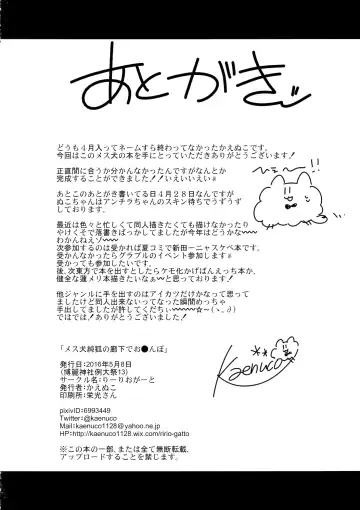 あとがき
どうも4月入ってネームすら終わってなかったかえぬこです。
今回はこのメス犬の本を手にとっていただきありがとうございます!
正直間に合うか分かんなかったんですがなんとか
完成することができました!!いえいいえい♯
あとこのあとがき書いてる日4月28日なんですが
ぬこちゃんはアンチラちゃんのスキン待ちでうずうず
しております。
最近は色々と忙しくて同人描きたくても描けなかったり
やけくそで落書きばっかしてましたが今年はどうかなー
わかんねえゾ〜〜
次参加するのは受かれば夏コミで新田一ニャスケベ本です。
受からなかったらグラブルのイベント参加します♯
受かっても参加したいです。
後、次東方で本を出すとしたらケモ化かげばんえっち本か、
健全な蓮メリ本描きたいなぁ〜と思ってます♯
他ジャンルに手を出すのはアイカツだけかなって思って
ましたけど同人出来ないってなった瞬間めっちゃ
手出してましたが許してくださいぃ〜〜〜☆〜(ヽ、∂)
ではでは!ありがとうございました!
ひえ〜!!
「メス犬綺狐の廊下でお●んぽ」
発行日:2016年5月8日
(博麗神社例大祭13)
サークル名:りーりおがーと
発行者:かえぬこ
印刷所:栄光さん
Kaenuco
pixivID:6993449
Twitter@kaenuco
Mail:kaenuco1128@yahoo.ne.jp
HP:http://kaenuco1128.wix.com/ririo-gatto
※この本の一部、または全て無断転載、
アップロードする事を禁じます。